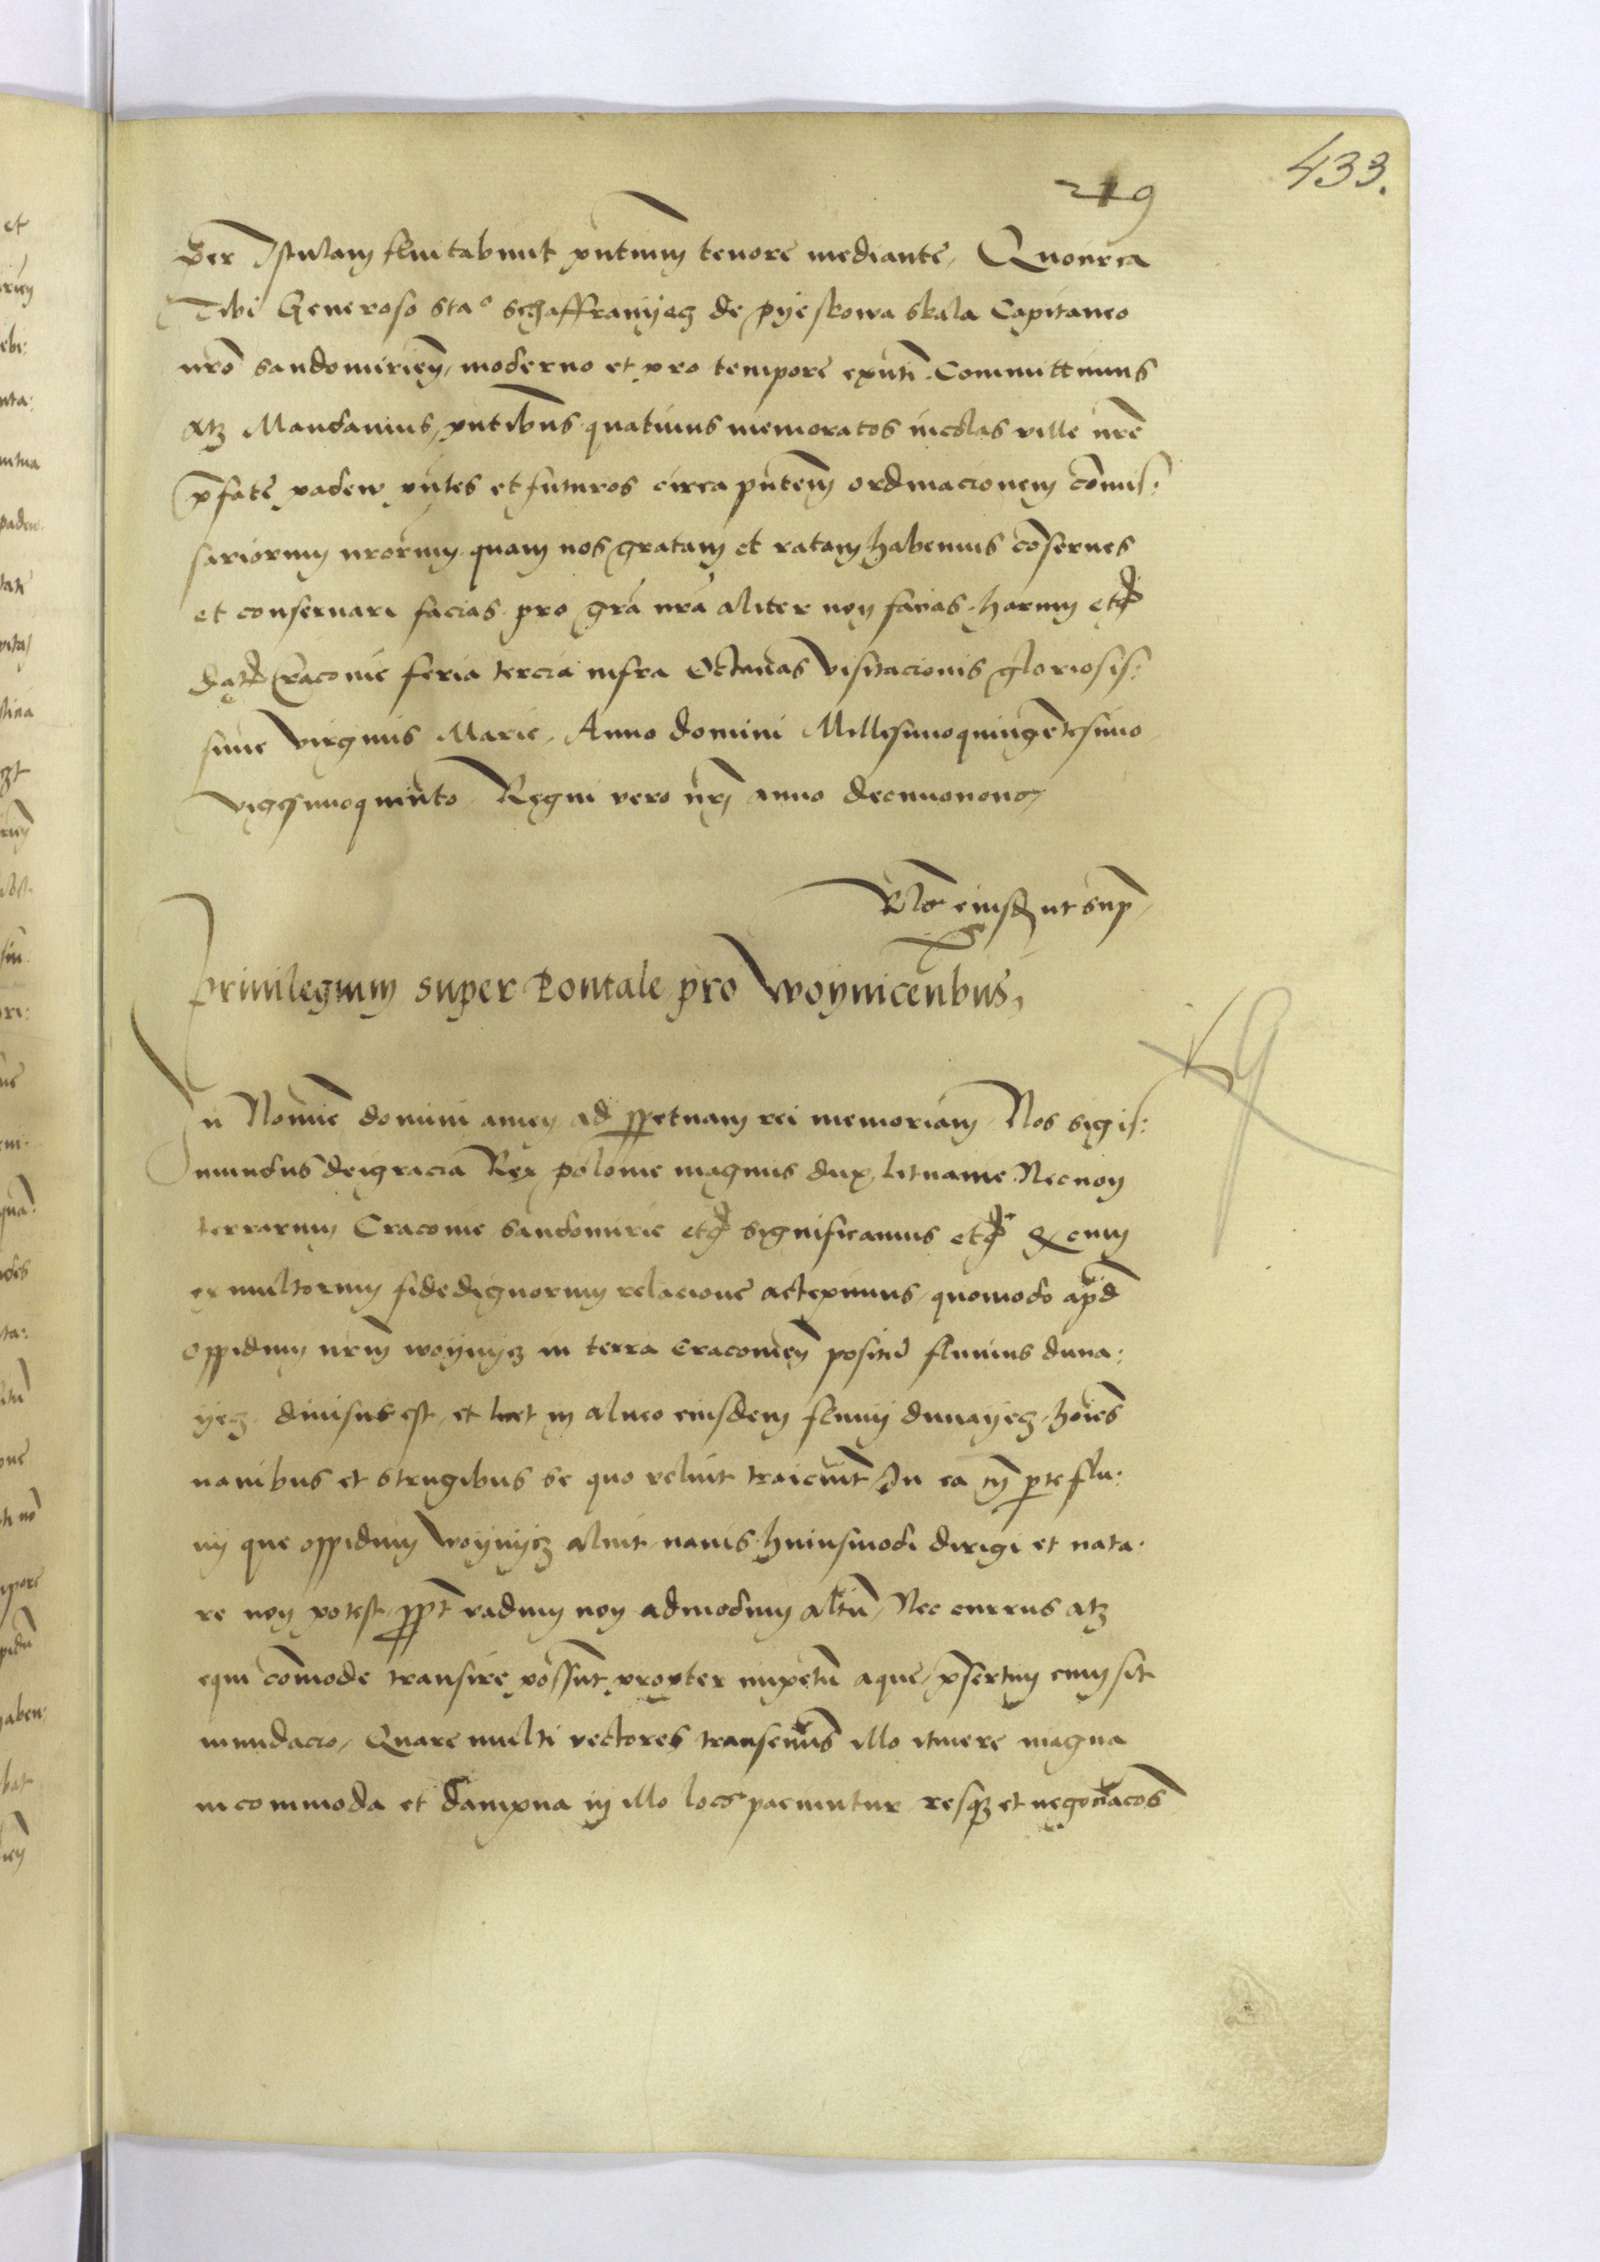 433.
219
per Istulam fluitabunt pntium tenore mediante, Quocirca
Tibi Generoso sta° schaffranyecz de pyeskowa skala Capitaneo
nro sandomirien, moderno et pro tempore exnti. Committimus
atz Mandamus, pntibus quatinus memoratos incolas ville nre
pfate padew pntes et futuros circa pntem ordinacionem comis:
sariorum nrorum quam nos gratam et ratam habemus conserues
et conseruari facias pro gra nra aliter non facias. harum etc
dat Cracouie feria tercia infra Octauas visitacionis gloriosis:
sime virginis Marie, Anno domini Millesimoquingetesimo
vigesimoquinto Regni vero nri anno decimonono
Rlo eiusd ut sup
Priuilegium super Pontale pro woynicenbus,
In Nomine domini amen ad ppetuam rei memoriam Nos sigis:
mundus deigracia Rex polonie magnus dux lituanie Necnon
terrarum Cracouie sandomirie etc significamus etc Q cum
ex multorum fidedignorum relacione acceperimus, quomodo apd
oppidum nrm woynycz in terra cracouien positu fluuius duna:
yecz diuisus est, et licet in alueo eiusdem fluuij dunayecz, hoies
nauibus et strugibus se quo velint traiciunt In ea tn pte flu:
uij que oppidum woynycz aluit nauis huiusmodi dirigi et nata:
re non potest, ppt vadum non admodum altu, Nec currus atz
equi comode transire possunt propter impetu aque, psertim cum sit
inundacio, Quare multi vectores transeuns illo itinere magna
incommoda et dampna in illo loco paciuntur resqz et negociacos